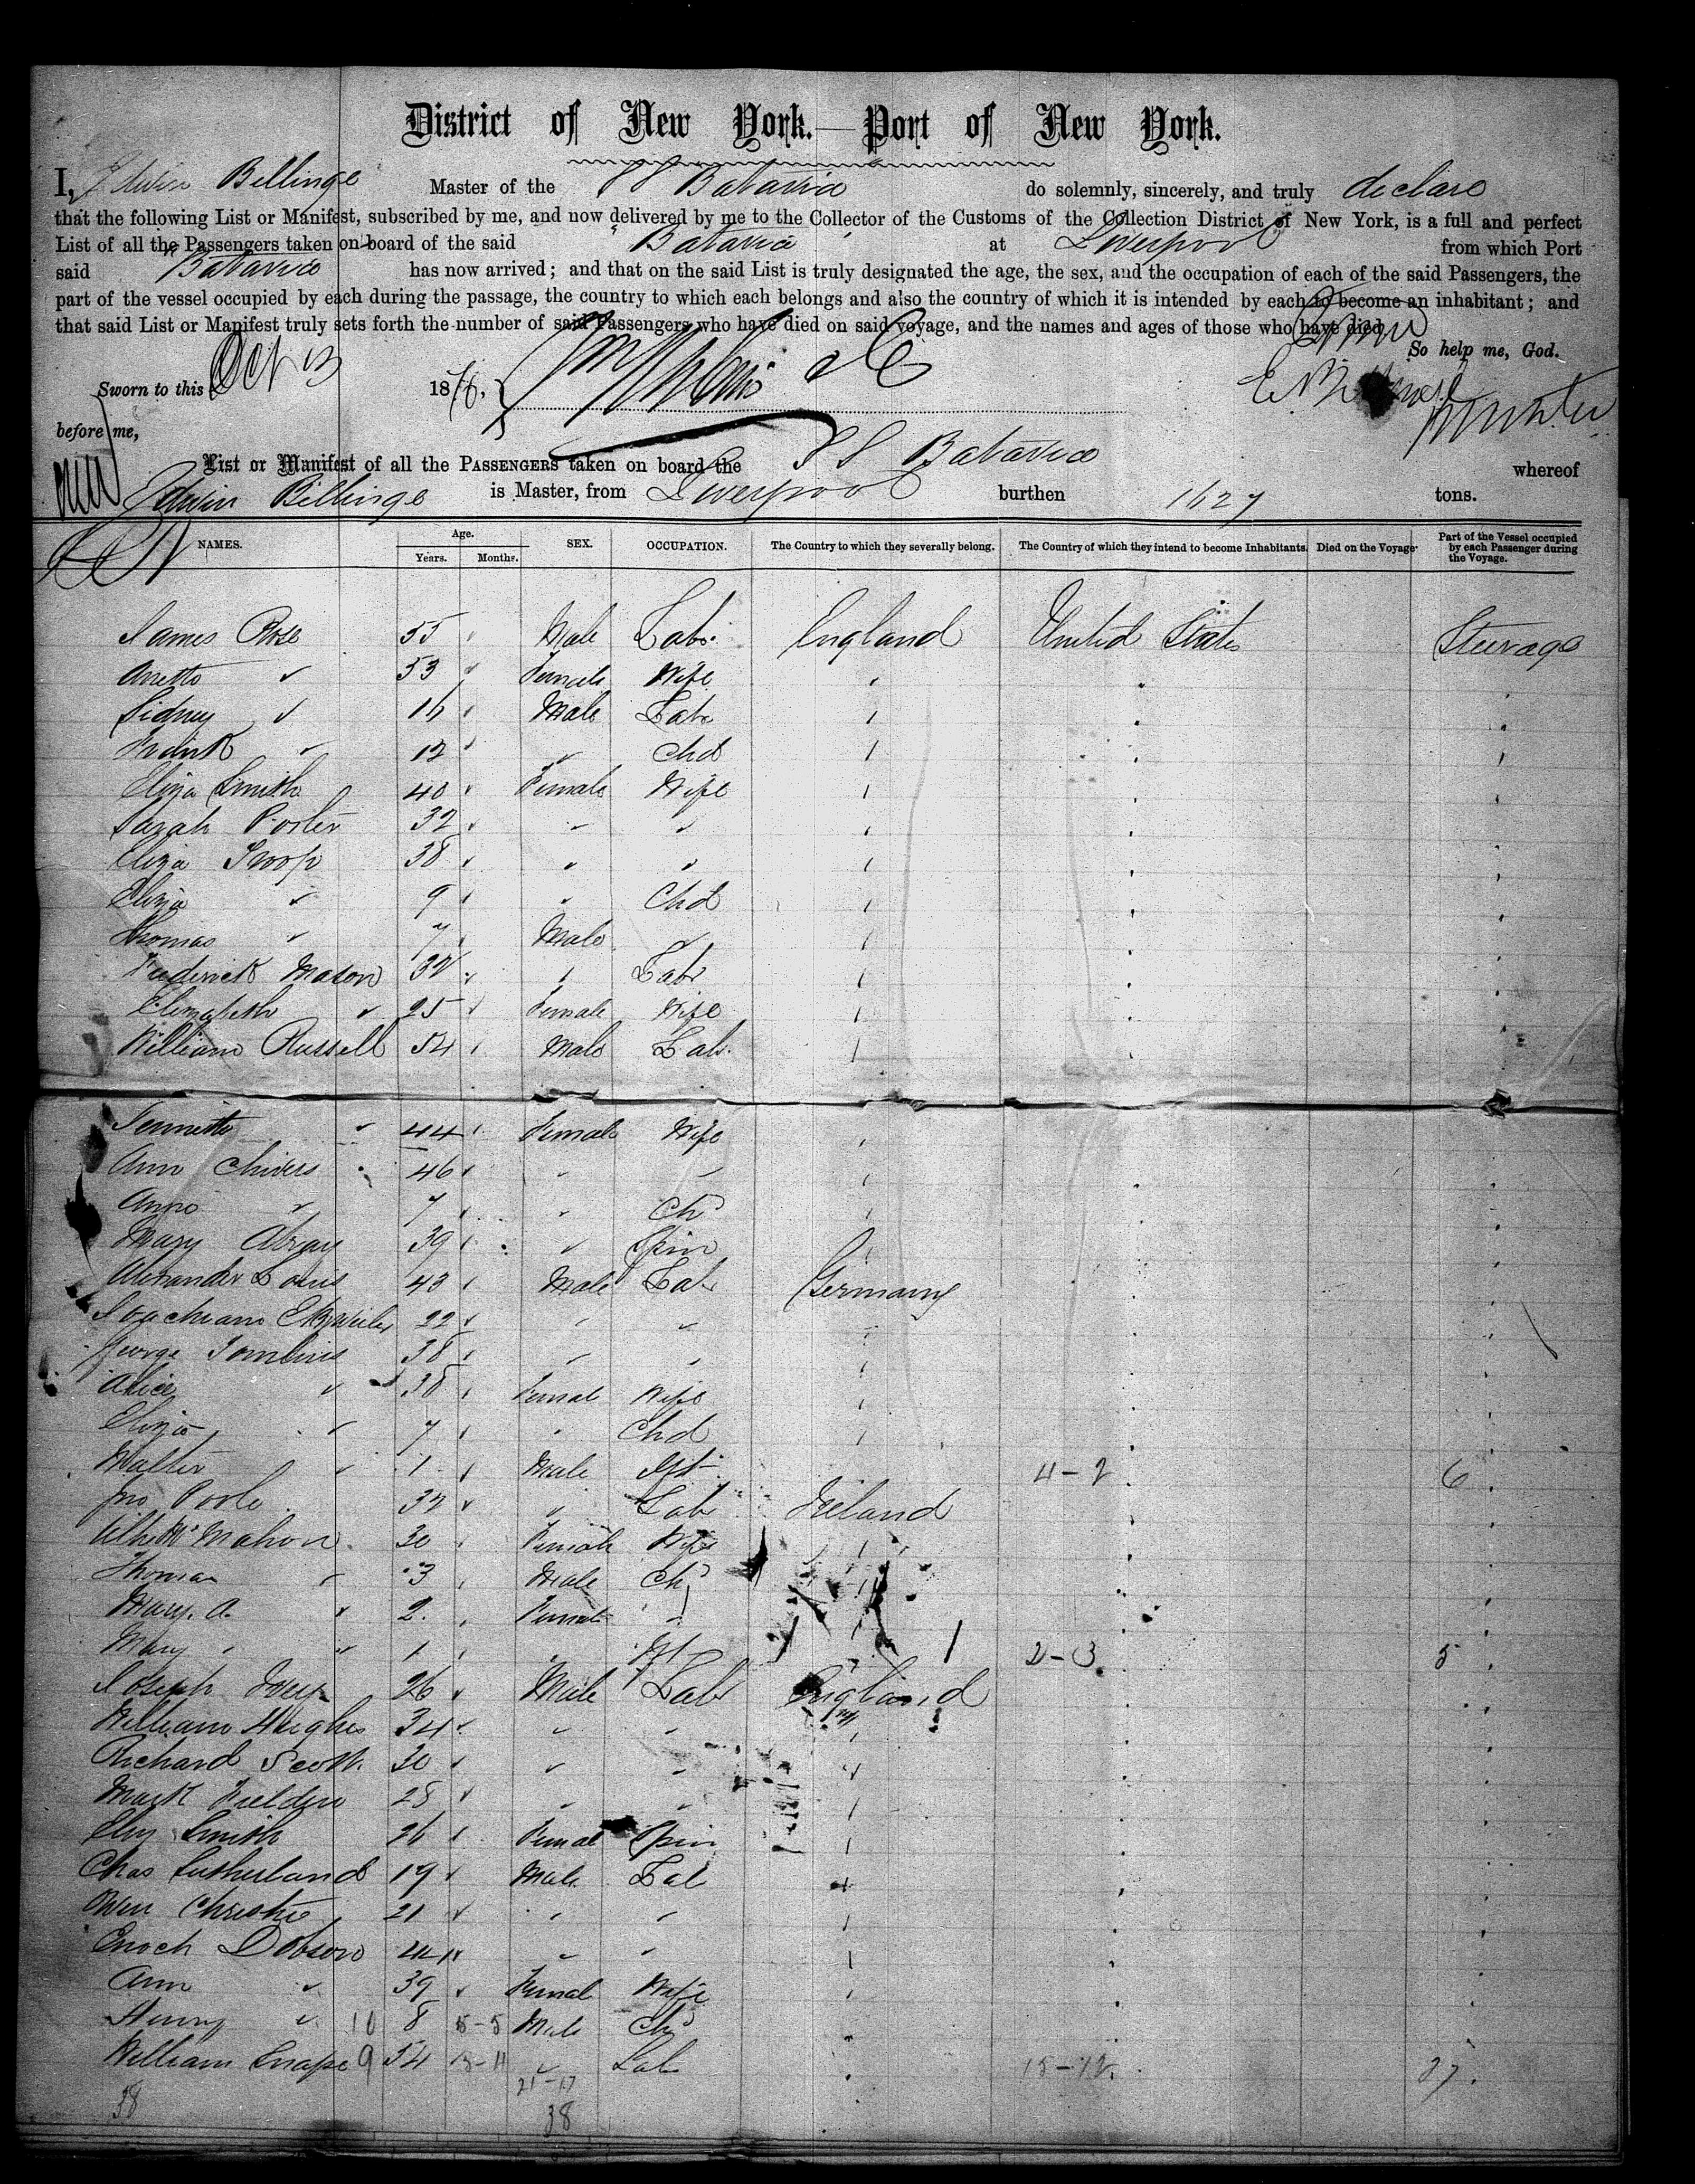 District of New York.—Port of New York.
I, Edwin Billinge Master of the SS Batavia do solemnly, sincerely, and truly declare
that the following List or Manifest, subscribed by me, and now delivered by me to the Collector of the Customs of the Collection District of New York, is a full and perfect
List of all the Passengers taken on board of the said Batavia at Liverpool from which Port
said Batavia has now arrived; and that on the said List is truly designated the age, the sex, and the occupation of each of the said Passengers, the
part of the vessel occupied by each during the passage, the country to which each belongs and also the country of which it is intended by each to become an inhabitant; and
that said List or Manifest truly sets forth the number of said Passengers who have died on said voyage, and the names and ages of those who have died.
So help me, God.
Sworn to this Oct 13 1876,
before me,
List or Manifest of all the PASSENGERS taken on board the SS Batavia whereof
Edwin Billinge is Master, from Liverpool burthen 1627 tons.
NAMES. Age. Years. Months. SEX. OCCUPATION. The Country to which they severally belong. The Country of which they intend to become Inhabitants. Died on the Voyage. Part of the Vessel occupied by each Passenger during the Voyage.
James Rose 55 Male Labr England United States Steerage
53 Female Wife
Sidney 16 Male Labr
Frank 12 " Chd
Eliza Smith 40 Female Wife
Sarah 32 " "
Eliza 38 " "
Eliza " 9 " Chd
Thomas " 7 Male "
Frederick Mason 32 " Labr
Elizabeth " 25 Female Wife
William Russell 54 Male Lab.
" 44 Female Wife
Ann Chivers 46 " "
" 7 " Chd
Mary 39 " Spin
Alexander Louis 43 Male Lab Germany
22 " "
George Tomlins 38 " "
Alice " 38 Female Wife
Eliza " 7 " Chd
Walter " 1 Male Inft 4-2 6
Jno Poole 32 " Lab Ireland
McMahon 30 Female Wife
Thomas " 3 Male Chd
Mary. A. " 2 Female "
Mary " 1 Inft 2-3 5
Joseph 26 Male Labr England
William Hughes 34 " "
Richard Scott 30 " "
Mark 28 " "
Smith 26 Female Spin
Chas Sutherland 19 Male Lab
Christie 21 " "
Enoch Dobson " "
Ann " 39 Female Wife
Henry " 10 8 Male Chd
William Snape 9 54 " Lab 15-12 27
21-17
38 38